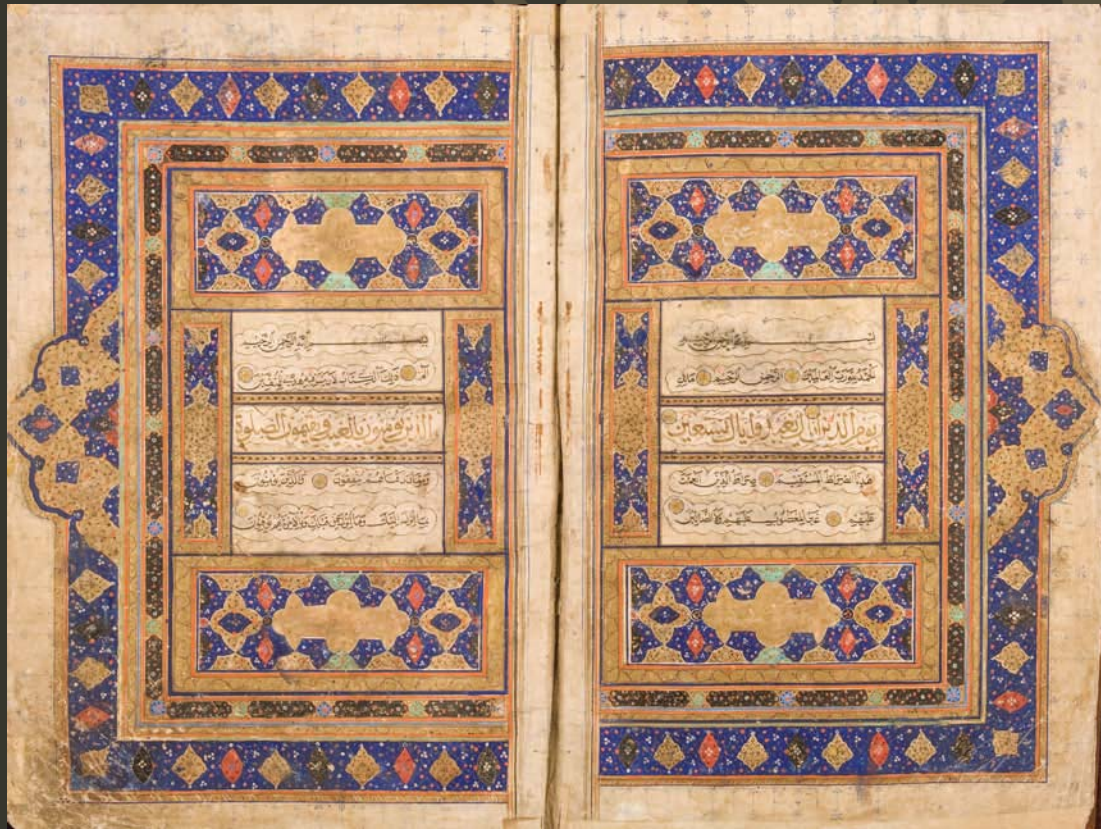 بسم الله الرحمن الرحيم
الحمد لله رب العالمين الرحمن الرحيم مالك
يوم الدين اياك نعبد واياك نستعين
اهدنا الصراط المستقيم صراط الذين انعمت
عليهم غير المغضوب عليهم ولا الضالين
بسم الله الرحمن الرحيم
الم ذلك الكتاب لا ريب فيه هدى للمتقين
الذين يؤمنون بالغيب ويقيمون الصلوة
ومما رزقناهم ينفقون والذين يؤمنون
بما انزل اليك وما انزل من قبلك وبالاخرة هم يوقنون